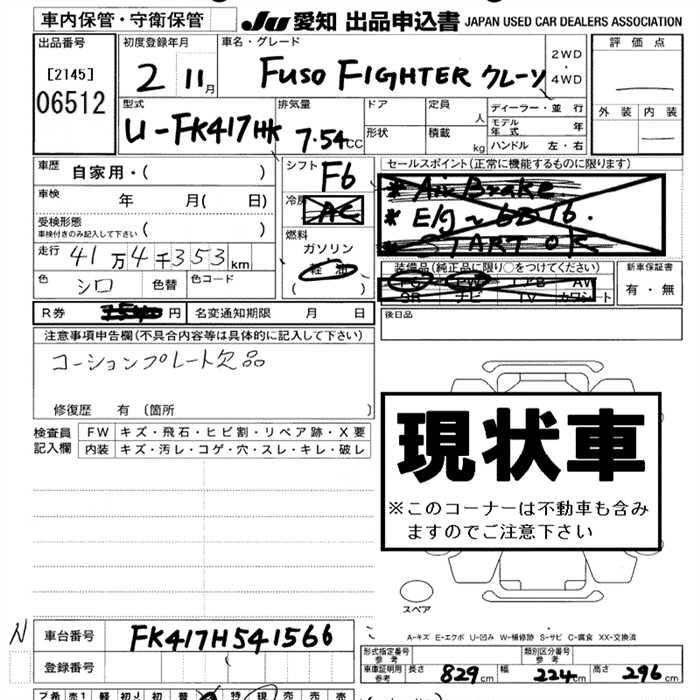 車内保管・守衛保管 JU 愛知 出品申込書 JAPAN USED CAR DEALERS ASSOCIATION
出品番号
[2145]
06512
初度登録年月
2 11月
車名・グレード
FUSO FIGHTER クレーン
2WD
・
4WD
評価点
外装 内装
型式
U-FK417HK
排気量
7.54CC
ドア
形状
定員 人
積載 kg
ディーラー・並行
モデル年式 年
ハンドル 左・右
車歴
自家用・( )
車検 年 月( 日)
受検形態
車検付きのみ記入して下さい ( )
走行 41万4千353km
色 シロ 色替 色コード
シフト F6
冷房 AC
燃料
ガソリン
軽油
( )
セールスポイント(正常に機能するものに限ります)
* Air Brake.
* E/g ~ 6D16.
* START OK
装備品(純正品に限り○をつけてください)
PS PW エアB AW
SR ナビ TV カワシート
新車保証書
有・無
R券 円 名変通知期限 月 日
後日品
注意事項申告欄(不具合内容等は具体的に記入して下さい)
コーションプレート欠品
修復歴 有〔箇所 〕
検査員記入欄
FW キズ・飛石・ヒビ割・リペア跡・X要
内装 キズ・汚レ・コゲ・穴・スレ・キレ・破レ
現状車
※このコーナーは不動車も含み
ますのでご注意下さい
スペア
A-キズ E-エクボ U-凹み W-補修跡 S-サビ C-腐食 XX-交換済
N 車台番号 FK417H541566
登録番号
形式指定番号 参考
類別区分番号 参考
車庫証明用参考 長さ 829cm 幅 224cm 高さ 296cm